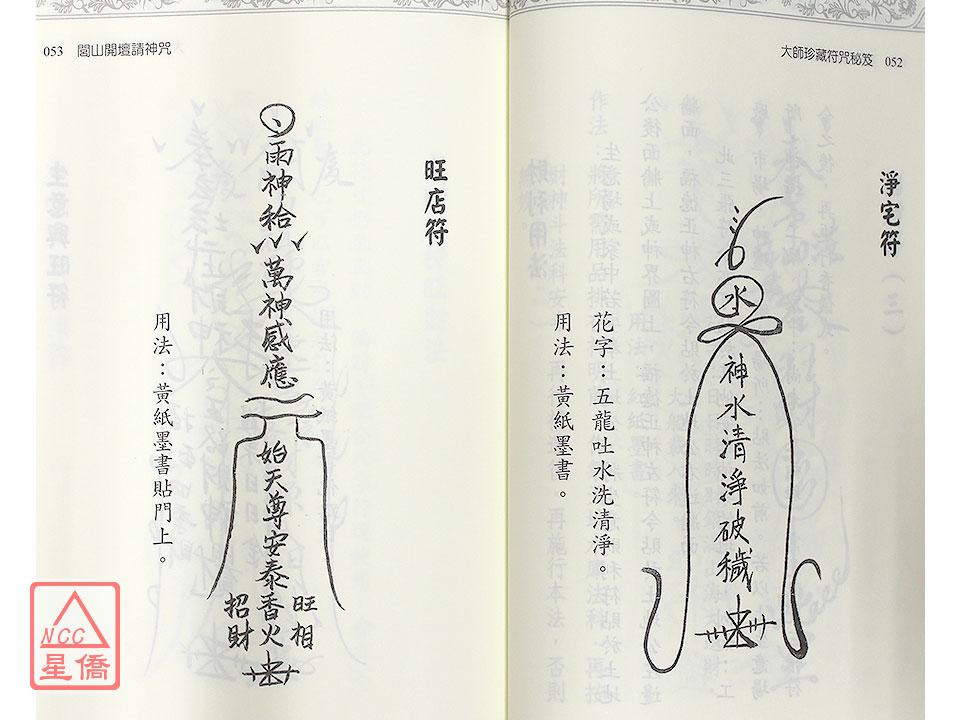 大師珍藏符咒秘笈 052
淨宅符
水
神水清淨破穢
花字：五龍吐水洗清淨。
用法：黃紙墨書。
053 閭山開壇請神咒
旺店符
雨神給
萬神感應
始天尊安泰香火
旺相
招財
用法：黃紙墨書貼門上。
NCC
星僑